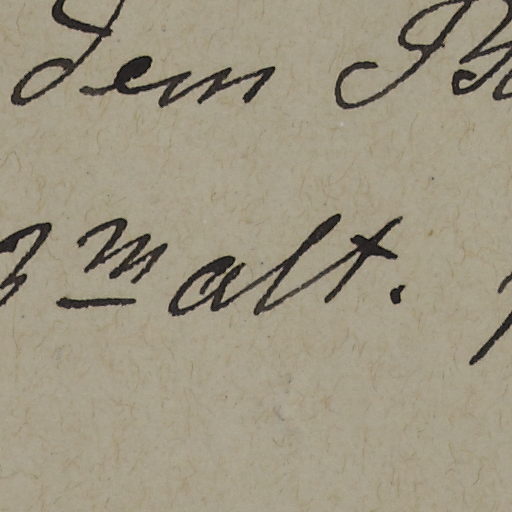 dem
3 m alt.